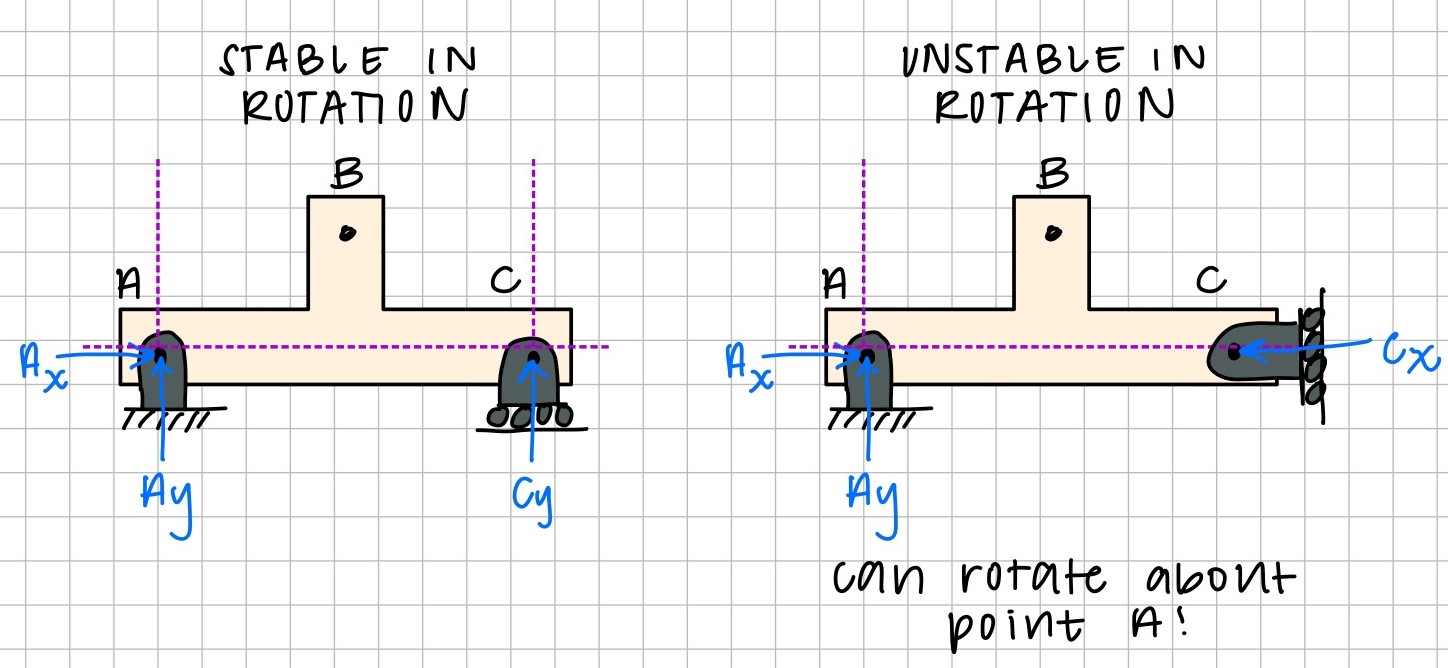 STABLE IN
ROTATION
B
A
C
Ax
Ay
Cy
UNSTABLE IN
ROTATION
B
A
C
Ax
Cx
Ay
can rotate about
point A!